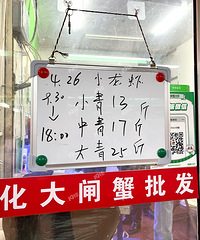 4.26 小龙虾
9.30 小青13斤
↓ 中青17斤
18:00
大青25斤
化大闸蟹批发